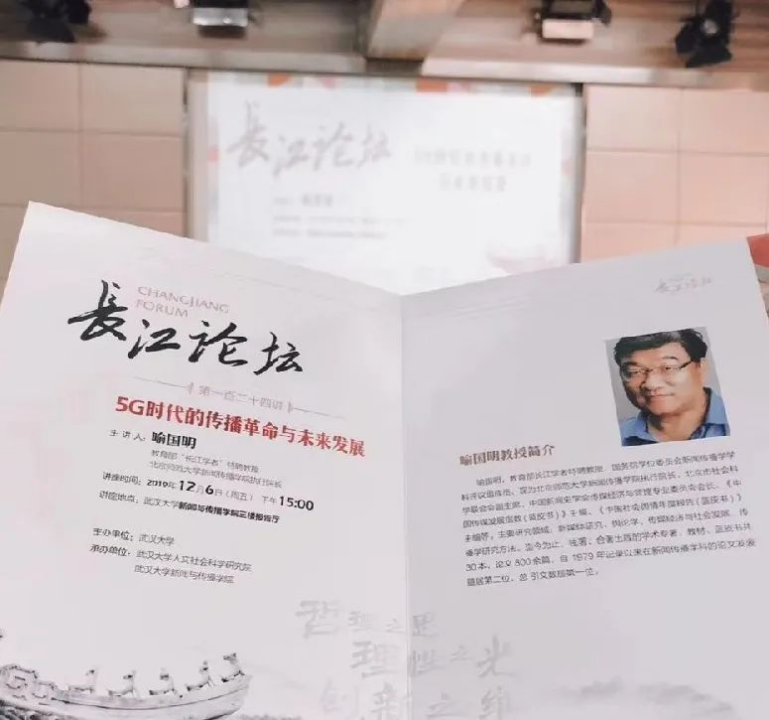 長江论坛
長江论坛
CHANGJIANG
FORUM
第一百二十四讲
5G时代的传播革命与未来发展
主讲人：喻国明
教育部“长江学者”特聘教授
北京师范大学新闻传播学院执行院长
讲座时间：2019年12月6日（周五）下午15:00
讲座地点：武汉大学新闻与传播学院三楼报告厅
主办单位：武汉大学
承办单位：武汉大学人文社会科学研究院
武汉大学新闻与传播学院
長江论坛
喻国明教授简介
喻国明，教育部长江学者特聘教授，国务院学位委员会新闻传播学学
科评议组成员，现为北京师范大学新闻传播学院执行院长，北京市社会科
学联合会副主席，中国新闻史学会传媒经济与管理专业委员会会长，《中
国传媒发展指数（蓝皮书）》主编，《中国社会舆情年度报告（蓝皮书）》
主编等。主要研究领域：新媒体研究、舆论学、传媒经济与社会发展、传
播学研究方法。迄今为止，独著、合著出版的学术专著、教材、蓝皮书共
30本，论文800余篇，自1979年记录以来在新闻传播学科的论文发表
总数第二位，总引文数居第一位。
哲理之思
理性之光
创新之维